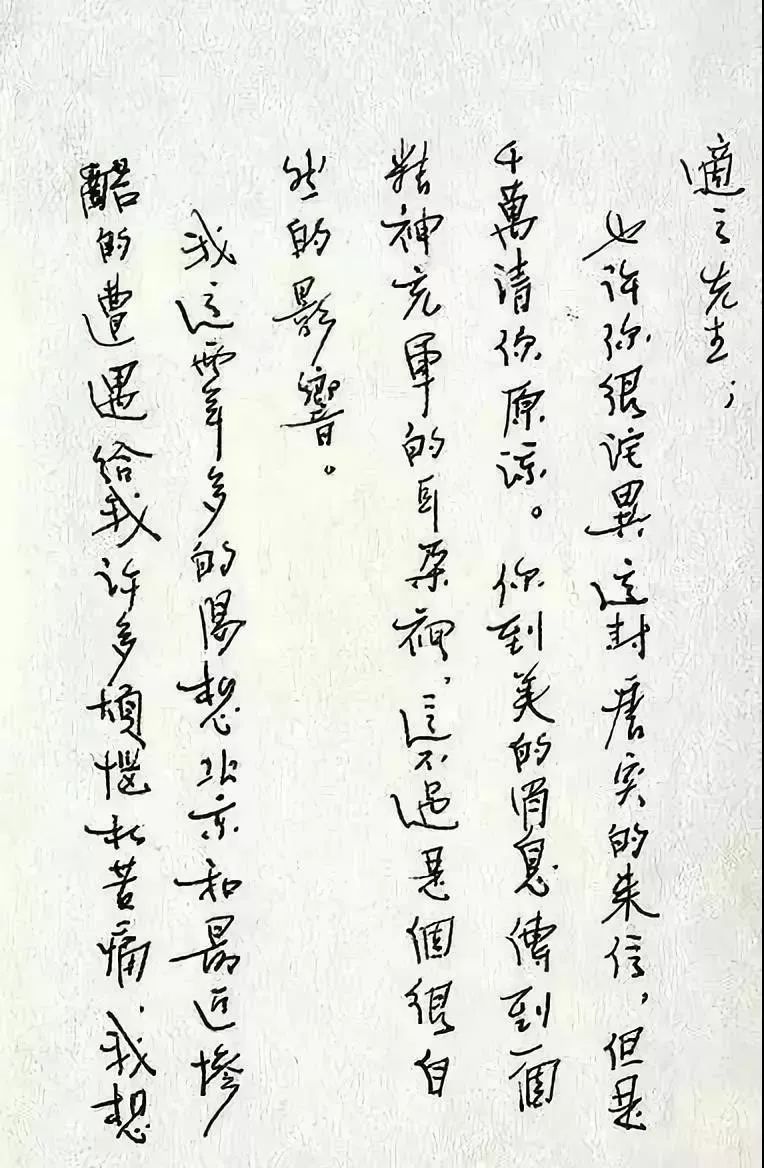 適之先生；
也许你很诧異這封唐突的来信，但是
千萬清你原諒。你到美的消息傳到一個
精神充軍的耳朵裡，這不過是個很自
然的影響。
我這兩年多的渴想北京和最近慘
酷的遭遇给我许多煩惱和苦痛，我想